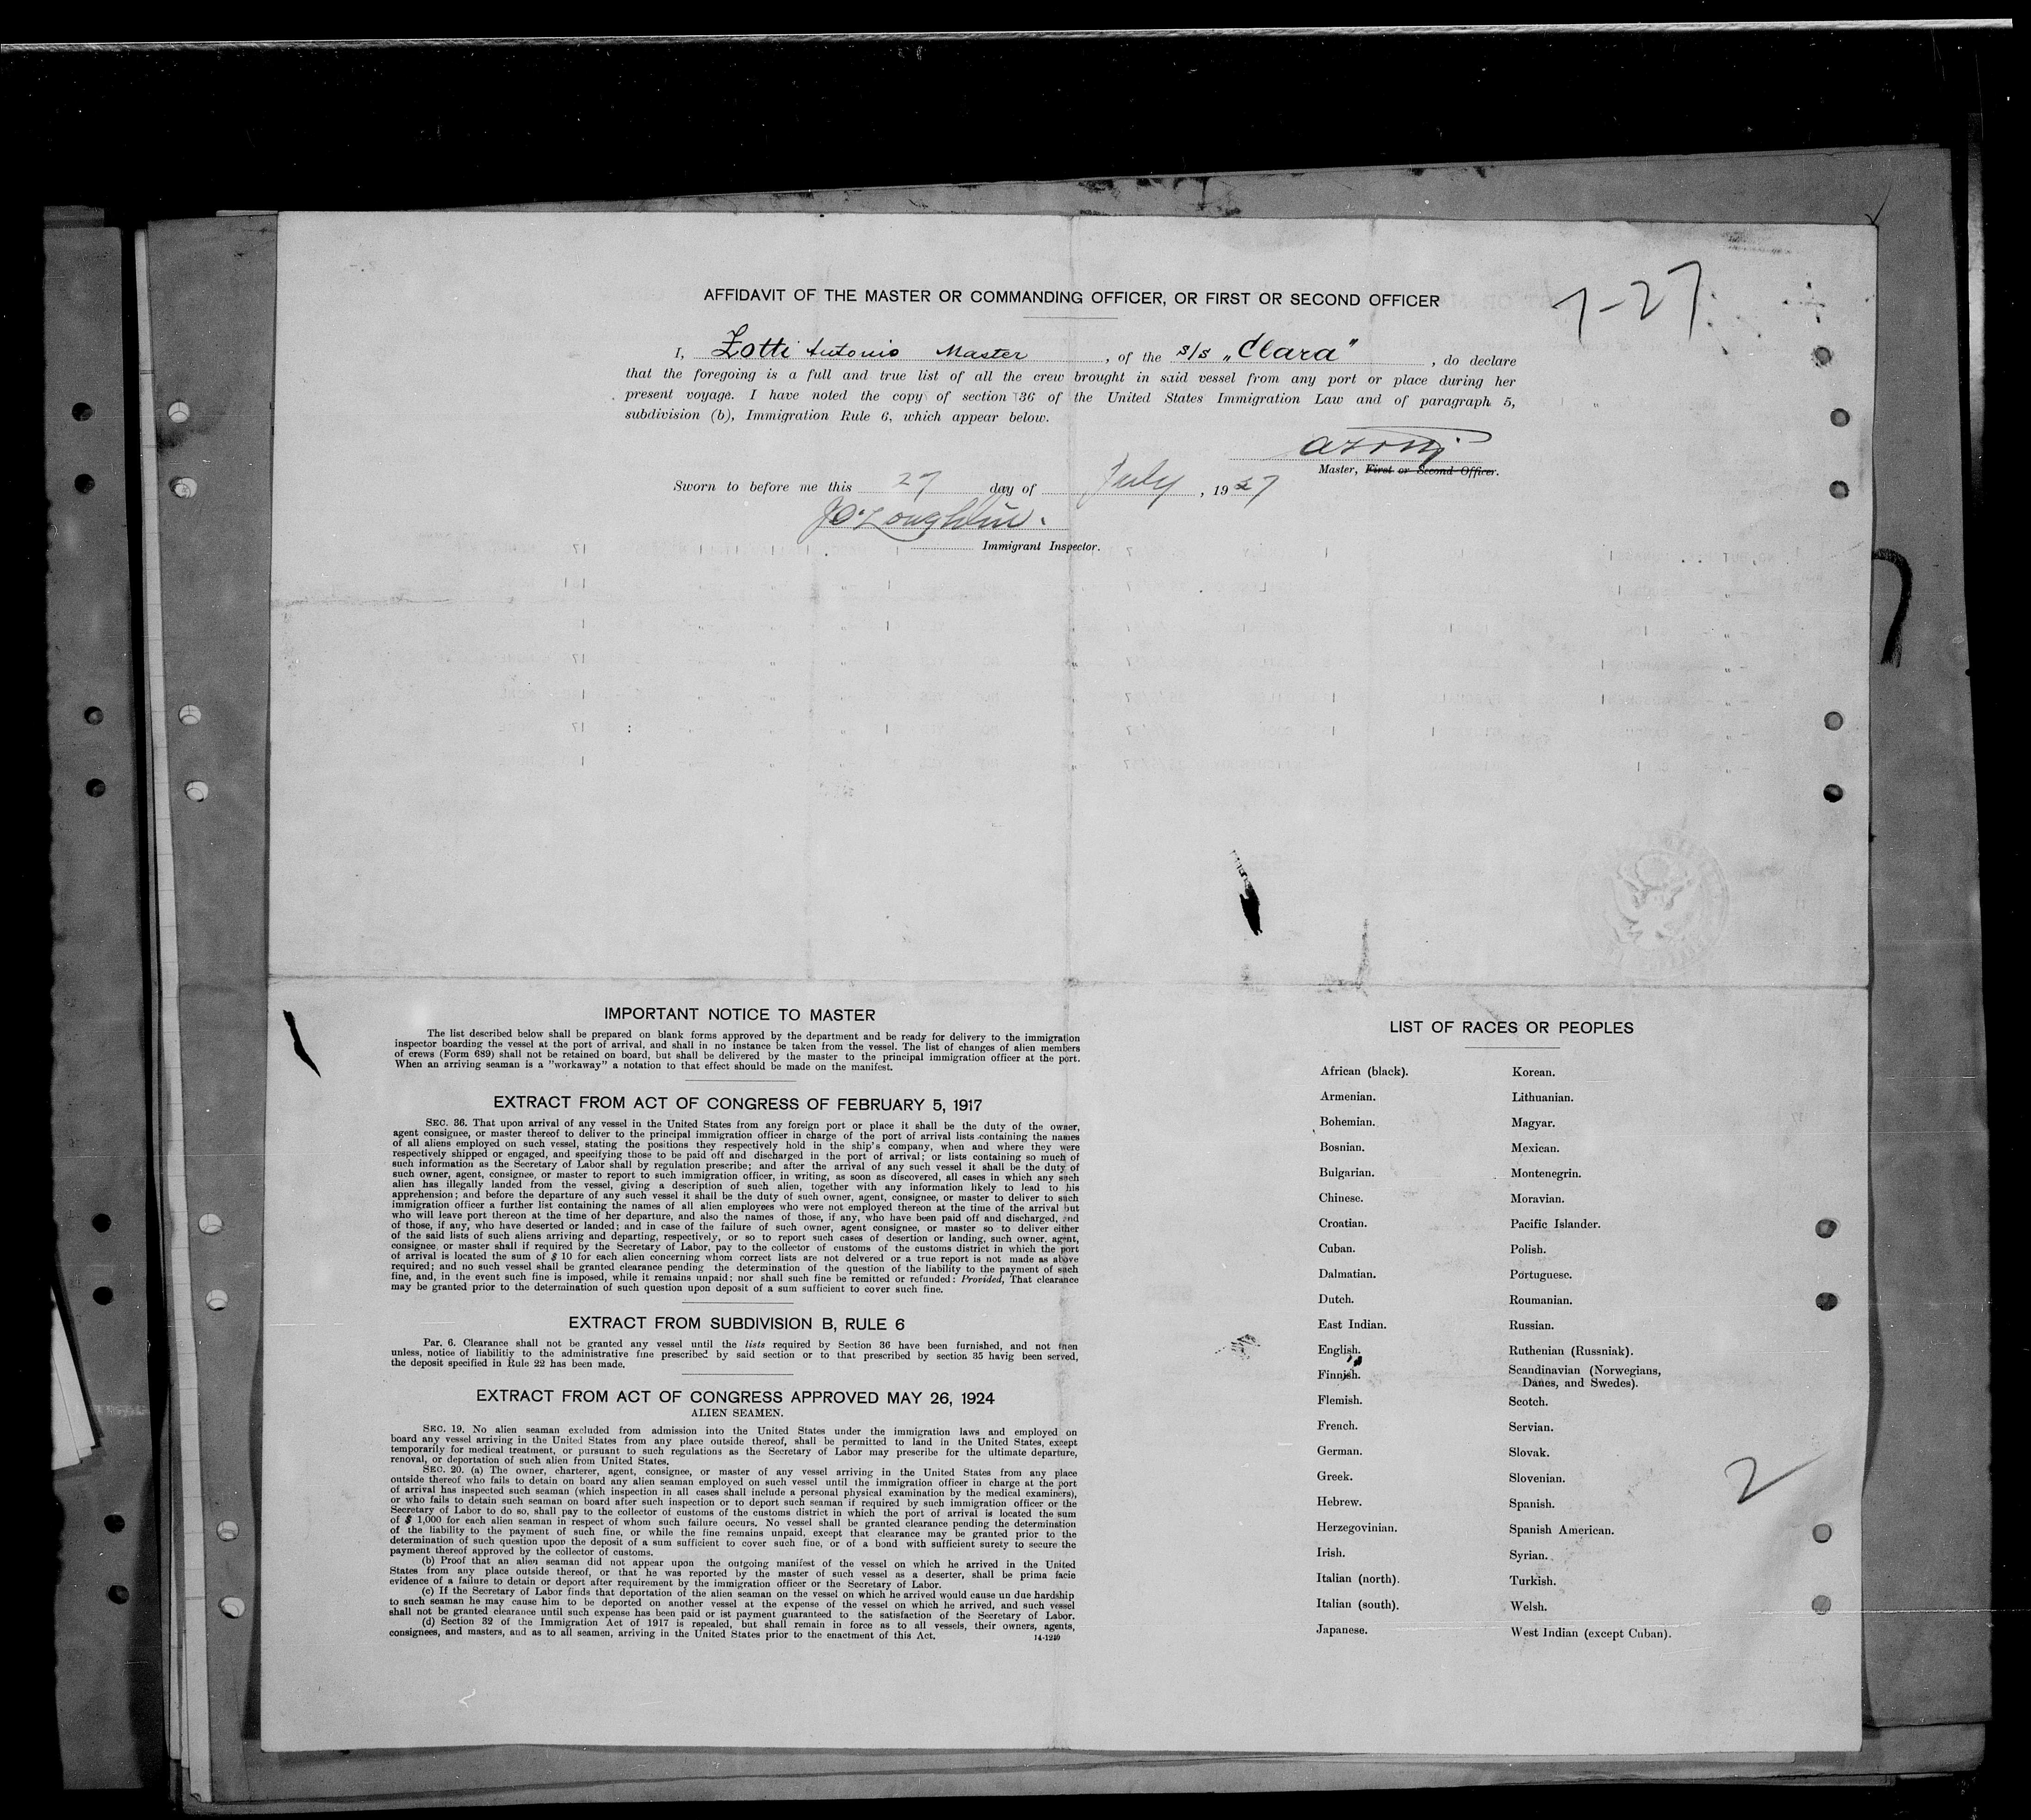 AFFIDAVIT OF THE MASTER OR COMMANDING OFFICER, OR FIRST OR SECOND OFFICER
7-27
I, Zotti Antonio Master, of the s/s „Clara", do declare
that the foregoing is a full and true list of all the crew brought in said vessel from any port or place during her
present voyage. I have noted the copy of section 36 of the United States Immigration Law and of paragraph 5,
subdivision (b), Immigration Rule 6, which appear below.
AZotti
Master, First or Second Officer.
Sworn to before me this 27 day of July, 1927
JO'Loughlin.
Immigrant Inspector.
IMPORTANT NOTICE TO MASTER
The list described below shall be prepared on blank forms approved by the department and be ready for delivery to the immigration
inspector boarding the vessel at the port of arrival, and shall in no instance be taken from the vessel. The list of changes of alien members
of crews (Form 689) shall not be retained on board, but shall be delivered by the master to the principal immigration officer at the port.
When an arriving seaman is a "workaway" a notation to that effect should be made on the manifest.
EXTRACT FROM ACT OF CONGRESS OF FEBRUARY 5, 1917
SEC. 36. That upon arrival of any vessel in the United States from any foreign port or place it shall be the duty of the owner,
agent consignee, or master thereof to deliver to the principal immigration officer in charge of the port of arrival lists containing the names
of all aliens employed on such vessel, stating the positions they respectively hold in the ship's company, when and where they were
respectively shipped or engaged, and specifying those to be paid off and discharged in the port of arrival; or lists containing so much of
such information as the Secretary of Labor shall by regulation prescribe; and after the arrival of any such vessel it shall be the duty of
such owner, agent, consignee, or master to report to such immigration officer, in writing, as soon as discovered, all cases in which any such
alien has illegally landed from the vessel, giving a description of such alien, together with any information likely to lead to his
apprehension; and before the departure of any such vessel it shall be the duty of such owner, agent, consignee, or master to deliver to such
immigration officer a further list containing the names of all alien employees who were not employed thereon at the time of the arrival but
who will leave port thereon at the time of her departure, and also the names of those, if any, who have been paid off and discharged, and
of those, if any, who have deserted or landed; and in case of the failure of such owner, agent consignee, or master so to deliver either
of the said lists of such aliens arriving and departing, respectively, or so to report such cases of desertion or landing, such owner, agent,
consignee, or master shall if required by the Secretary of Labor, pay to the collector of customs of the customs district in which the port
of arrival is located the sum of $ 10 for each alien concerning whom correct lists are not delivered or a true report is not made as above
required; and no such vessel shall be granted clearance pending the determination of the question of the liability to the payment of such
fine, and, in the event such fine is imposed, while it remains unpaid; nor shall such fine be remitted or refunded: Provided, That clearance
may be granted prior to the determination of such question upon deposit of a sum sufficient to cover such fine.
EXTRACT FROM SUBDIVISION B, RULE 6
Par. 6. Clearance shall not be granted any vessel until the lists required by Section 36 have been furnished, and not then
unless, notice of liabilitiy to the administrative fine prescribed by said section or to that prescribed by section 35 havig been served,
the deposit specified in Rule 22 has been made.
EXTRACT FROM ACT OF CONGRESS APPROVED MAY 26, 1924
ALIEN SEAMEN.
SEC. 19. No alien seaman excluded from admission into the United States under the immigration laws and employed on
board any vessel arriving in the United States from any place outside thereof, shall be permitted to land in the United States, except
temporarily for medical treatment, or pursuant to such regulations as the Secretary of Labor may prescribe for the ultimate departure,
renoval, or deportation of such alien from United States.
SEC. 20. (a) The owner, charterer, agent, consignee, or master of any vessel arriving in the United States from any place
outside thereof who fails to detain on board any alien seaman employed on such vessel until the immigration officer in charge at the port
of arrival has inspected such seaman (which inspection in all cases shall include a personal physical examination by the medical examiners),
or who fails to detain such seaman on board after such inspection or to deport such seaman if required by such immigration officer or the
Secretary of Labor to do so, shall pay to the collector of customs of the customs district in which the port of arrival is located the sum
of $ 1,000 for each alien seaman in respect of whom such failure occurs. No vessel shall be granted clearance pending the determination
of the liability to the payment of such fine, or while the fine remains unpaid, except that clearance may be granted prior to the
determination of such question upon the deposit of a sum sufficient to cover such fine, or of a bond with sufficient surety to secure the
payment thereof approved by the collector of customs.
(b) Proof that an alien seaman did not appear upon the outgoing manifest of the vessel on which he arrived in the United
States from any place outside thereof, or that he was reported by the master of such vessel as a deserter, shall be prima facie
evidence of a failure to detain or deport after requirement by the immigration officer or the Secretary of Labor.
(c) If the Secretary of Labor finds that deportation of the alien seaman on the vessel on which he arrived would cause un due hardship
to such seaman he may cause him to be deported on another vessel at the expense of the vessel on which he arrived, and such vessel
shall not be granted clearance until such expense has been paid or ist payment guaranteed to the satisfaction of the Secretary of Labor.
(d) Section 32 of the Immigration Act of 1917 is repealed, but shall remain in force as to all vessels, their owners, agents,
consignees, and masters, and as to all seamen, arriving in the United States prior to the enactment of this Act.
14-1240
LIST OF RACES OR PEOPLES
African (black).
Armenian.
Bohemian.
Bosnian.
Bulgarian.
Chinese.
Croatian.
Cuban.
Dalmatian.
Dutch.
East Indian.
English.
Finnish.
Flemish.
French.
German.
Greek.
Hebrew.
Herzegovinian.
Irish.
Italian (north).
Italian (south).
Japanese.
Korean.
Lithuanian.
Magyar.
Mexican.
Montenegrin.
Moravian.
Pacific Islander.
Polish.
Portuguese.
Roumanian.
Russian.
Ruthenian (Russniak).
Scandinavian (Norwegians,
Danes, and Swedes).
Scotch.
Servian.
Slovak.
Slovenian.
Spanish.
Spanish American.
Syrian.
Turkish.
Welsh.
West Indian (except Cuban).
2